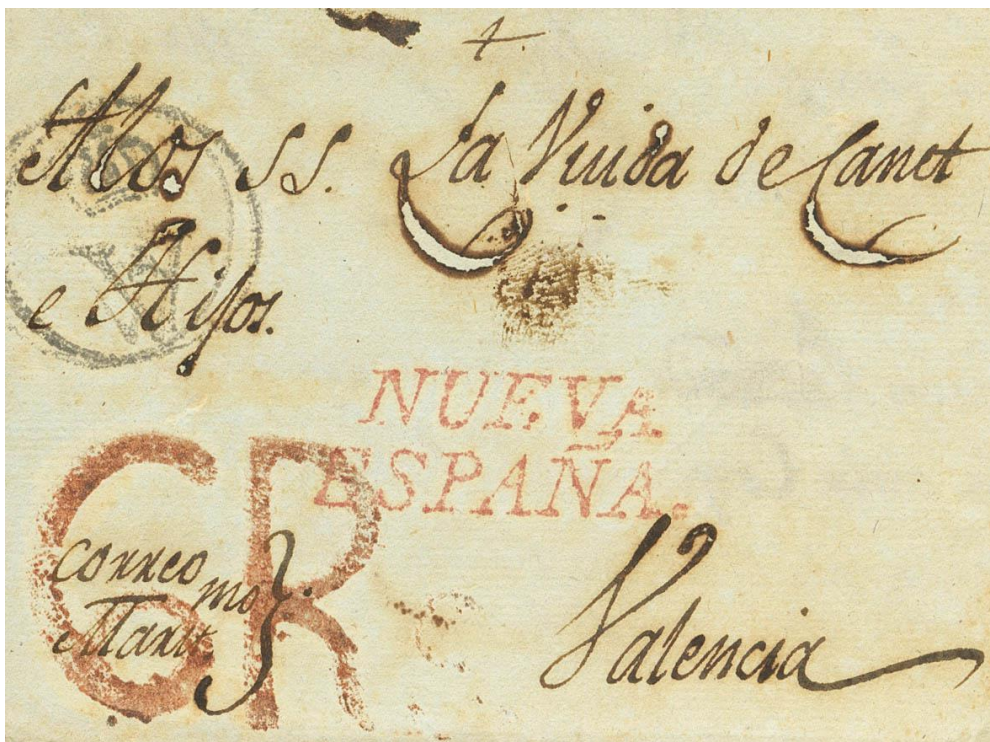 +
A los SS. La Viuda de Canet
e Hijos.
NUEVA
ESPAÑA.
GR
correo
Maritmo
Valencia